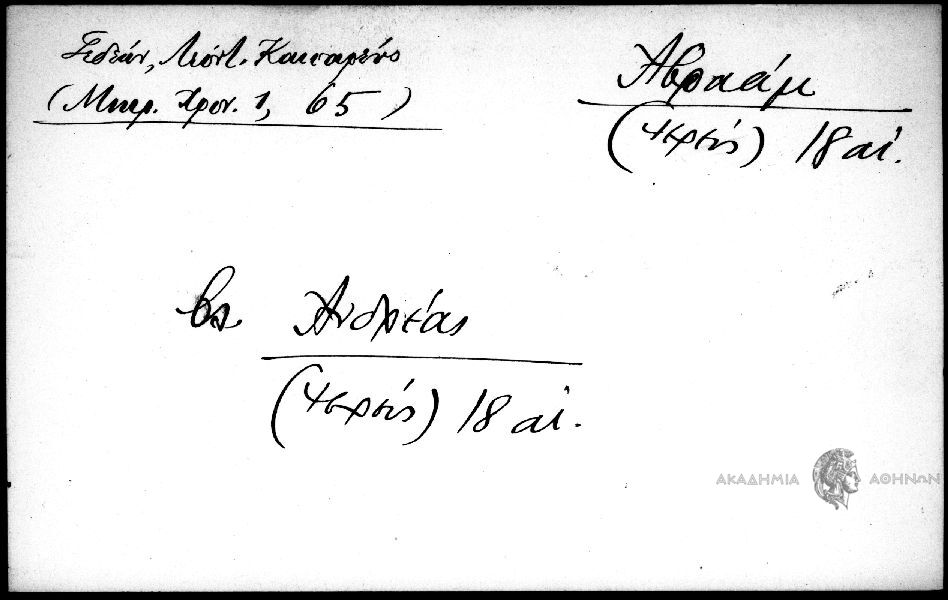 Καισαρεύς
(Μικρ. Χρον. 1, 65)
Αβραάμ
(ιερεύς) 18 αἰ.
βλ. Ανδρέας
(ιερεύς) 18 αἰ.
ΑΚΑΔΗΜΙΑ ΑΘΗΝΩΝ